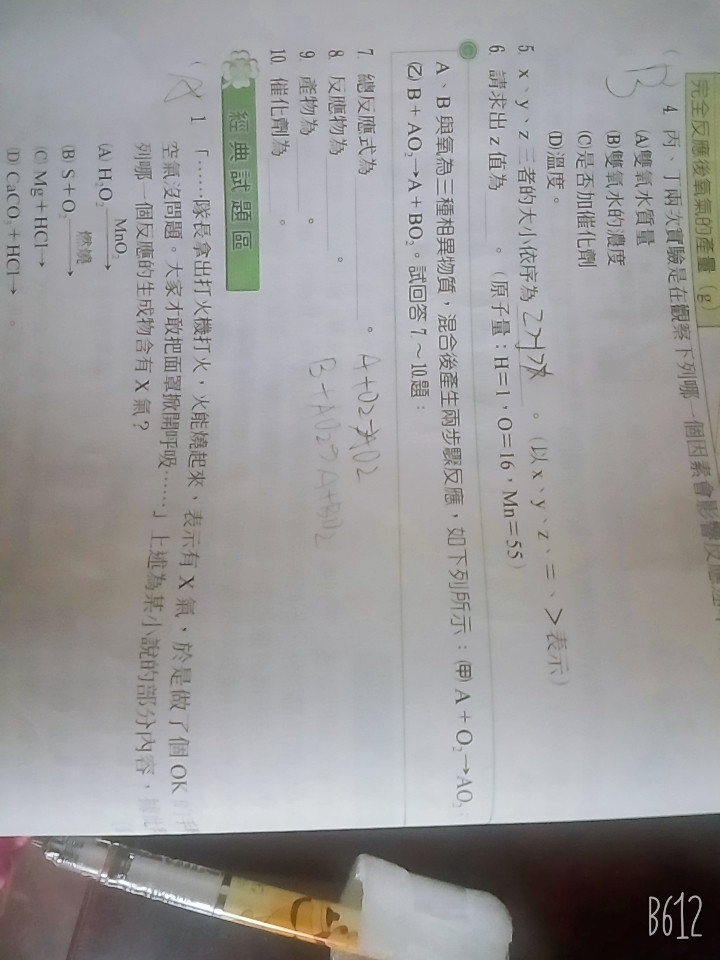 完全反應後氧氣的產量（g）
4. 丙、丁兩次實驗是在觀察下列哪一個因素會影響反應
B
(A)雙氧水質量
(B)雙氧水的濃度
(C)是否加催化劑
(D)溫度。
5. x、y、z 三者的大小依序為 z>y>x 。（以 x、y、z、＝、＞表示）
6. 請求出 z 值為 。（原子量：H＝1，O＝16，Mn＝55）
A、B 與氧為三種相異物質，混合後產生兩步驟反應，如下列所示：(甲) A + O₂→AO₂
(乙) B + AO₂→A + BO₂。試回答 7.～10.題：
7. 總反應式為 。 A+O2→AO2
8. 反應物為 。 B+AO2→A+BO2
9. 產物為 。
10. 催化劑為 。
經典試題區
( A 1. 「……隊長拿出打火機打火，火能燒起來，表示有 X 氣，於是做了個 OK
空氣沒問題。大家才敢把面罩掀開呼吸……」上述為某小說的部分內容，
列哪一個反應的生成物含有 X 氣？
(A) H₂O₂ MnO₂→
(B) S + O₂ 燃燒→
(C) Mg + HCl→
(D) CaCO₃ + HCl→ 。
B612